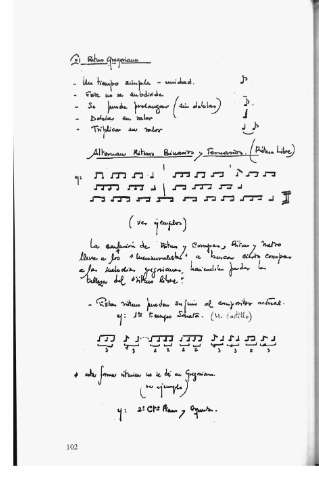 Ritmo Gregoriano
- Un tiempo simple - unidad.
- Este no se subdivide
- Se puede prolongar (sin doblar)
- Doblar su valor
- Triplicar su valor
Alternan Ritmos Binarios y Ternarios (Ritmo Libre)
ej:
(ver ejemplos)
La confusión de Ritmo y Compás, Ritmo y Metro
lleva a los "mensuralistas" a buscar cierto compás
a las melodías gregorianas, haciendo perder la
belleza del "ritmo libre".
- Estos ritmos pueden al compositor actual.
ej: 1er tiempo Sonata. (M. Castillo)
2 3 2 2 3 3 2 3
formas rítmicas no se da en Gregoriano.
(ver ejemplo)
ej: 2º Cto Piano y Orquesta.
102